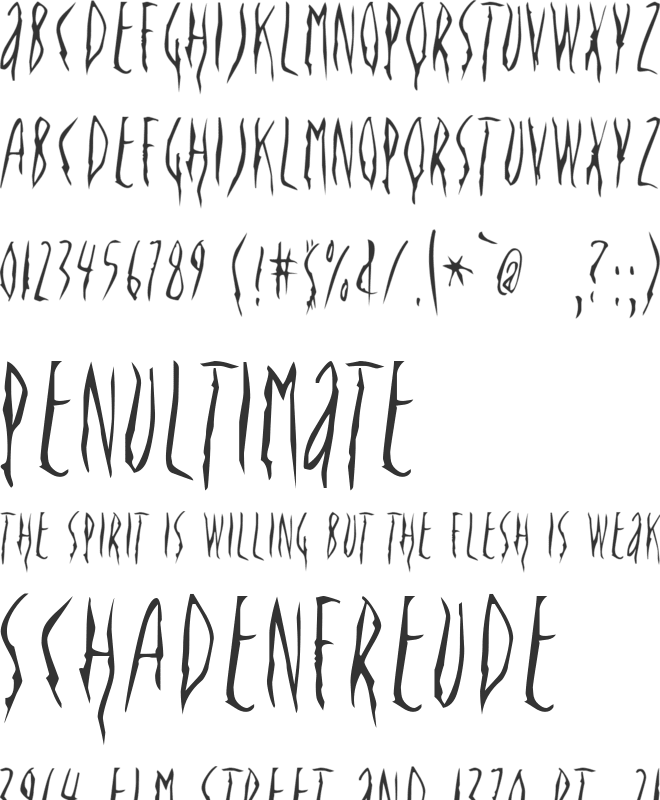 aBCDEFGHIJKLMNOPQRSTUVWXYZ
ABCDEFGHIJKLMNOPQRSTUVWXYZ
0123456789 (!#$%&/.\*`@ ,?:;)
PENULTIMaTE
THE SPIRIT IS WILLING BUT THE FLESH IS WEaK
SCHADENFREUDE
2914 ELM STREET aND 1270 RT. 21